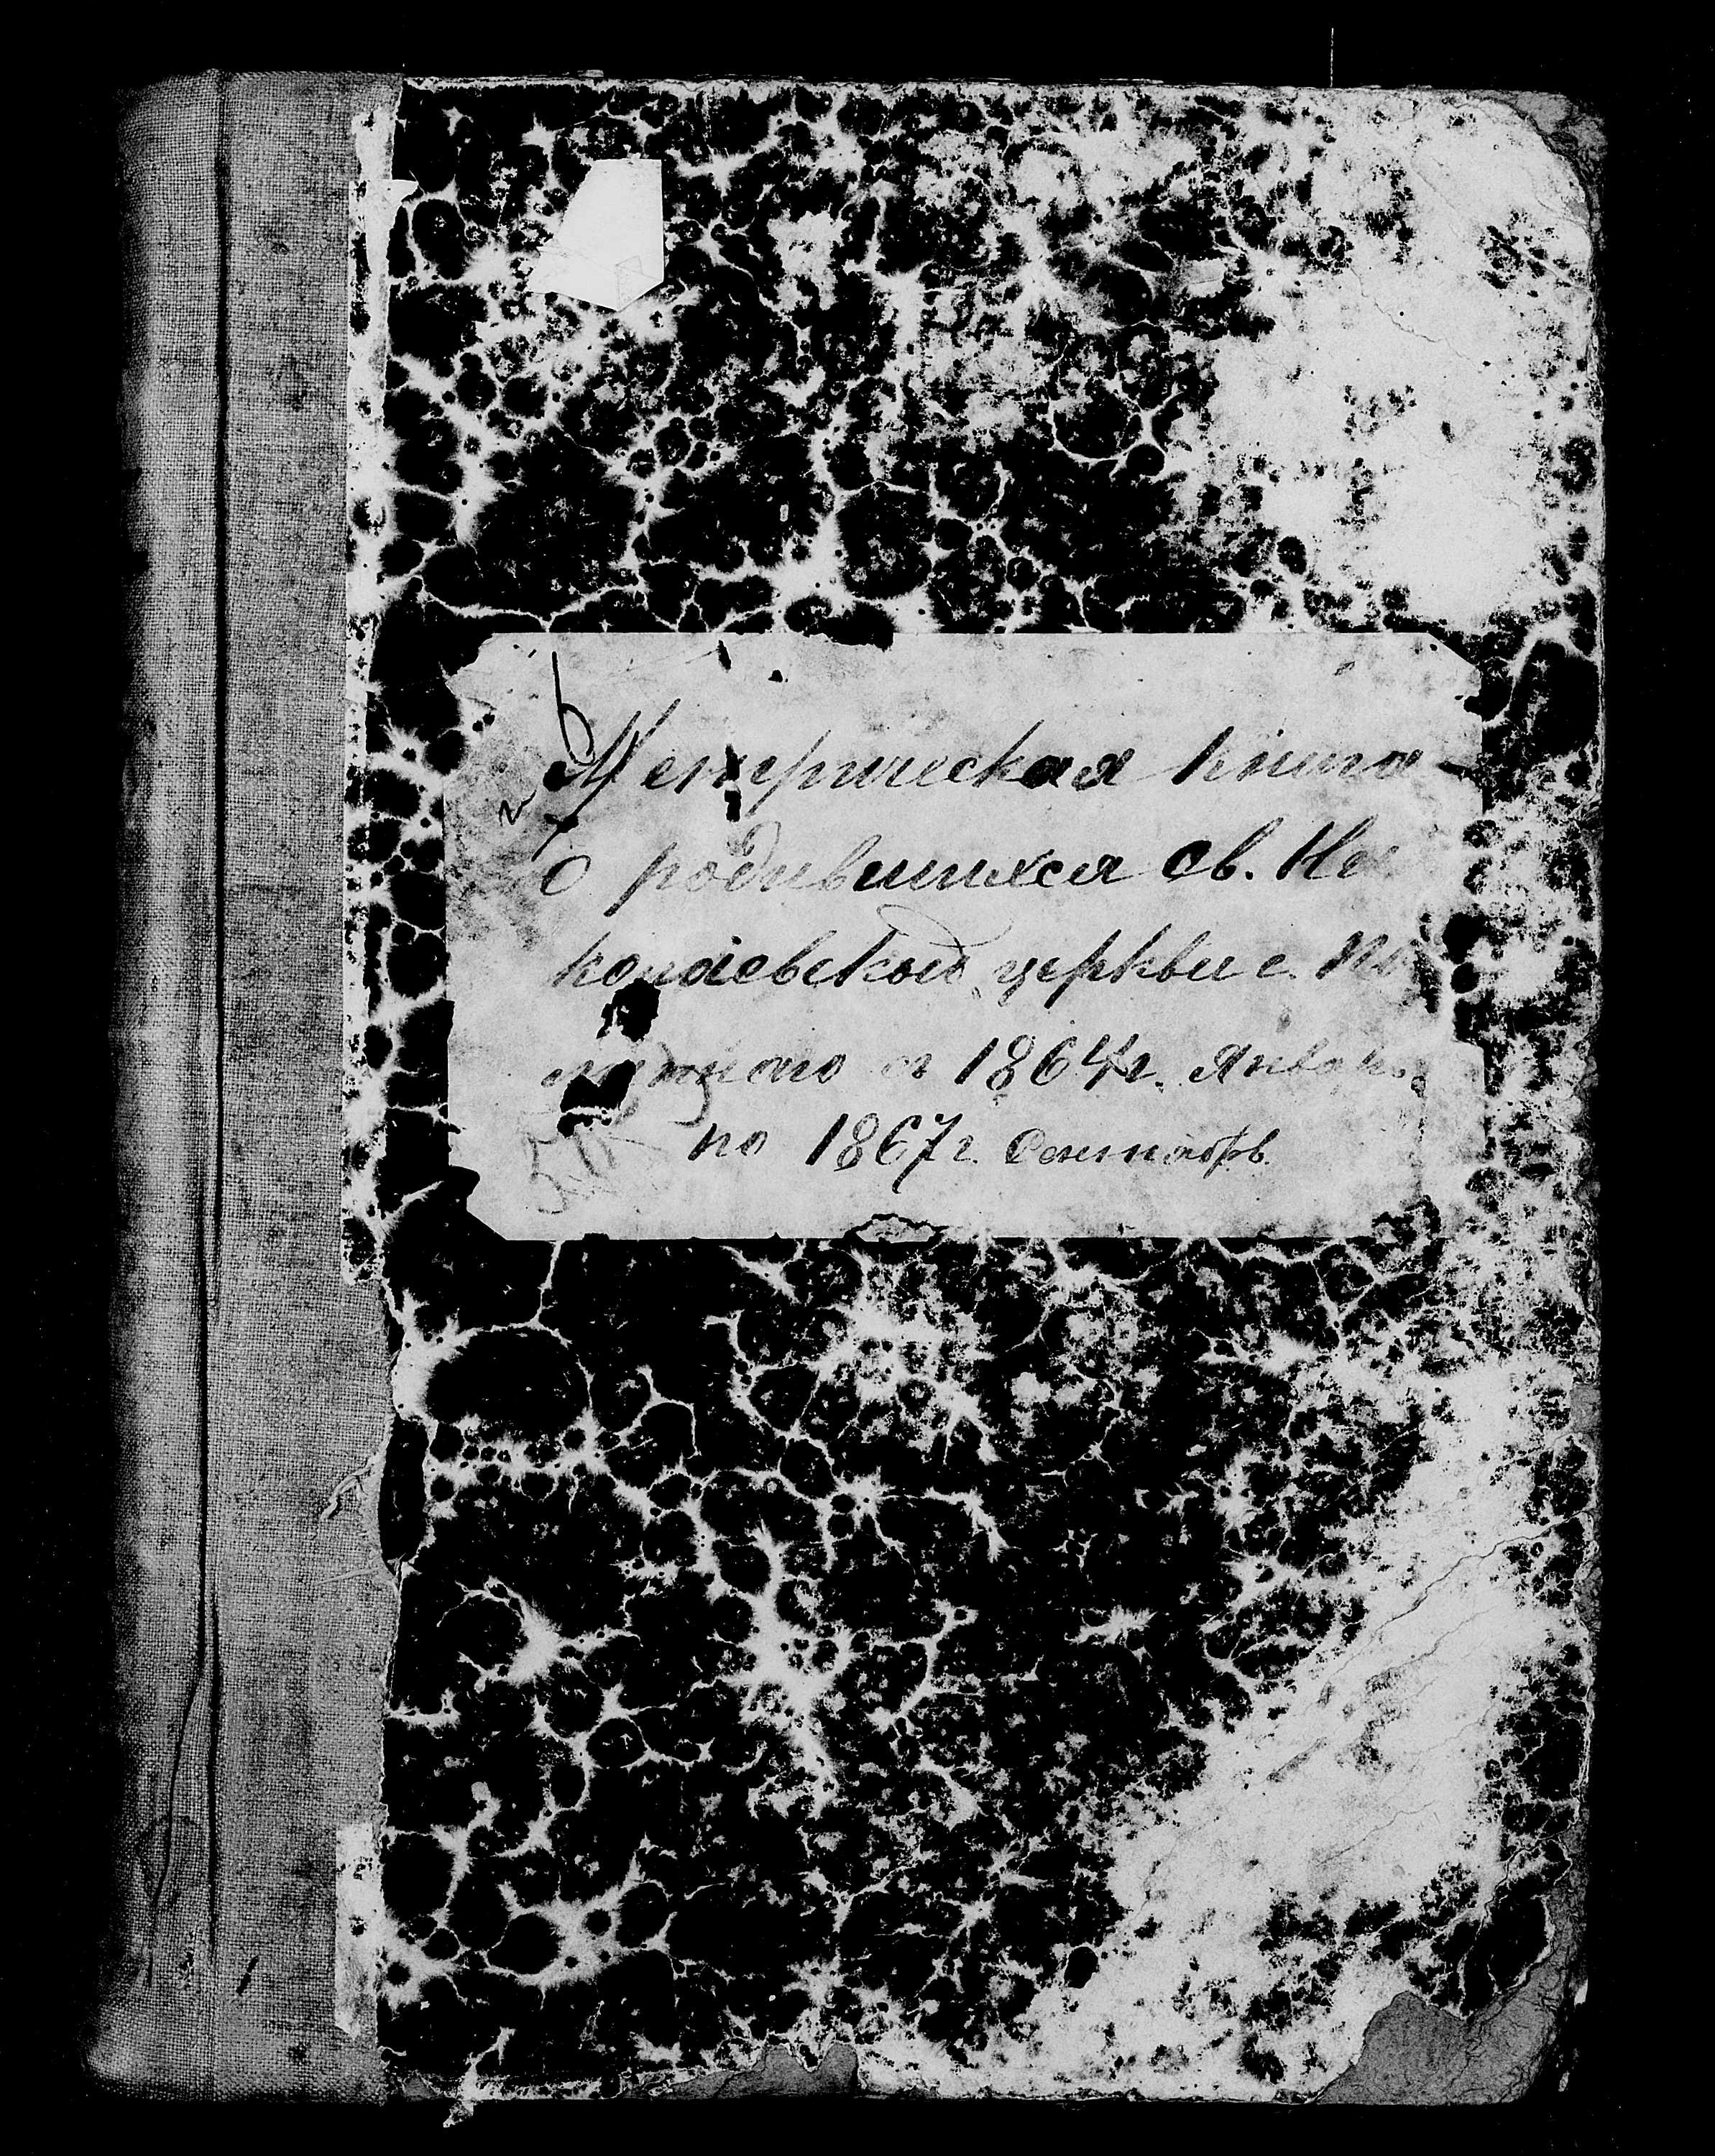 Метрическая книга
О родившихся св. Ни
колаевской церкви с.
с 1864 г. Январь
по 1867 г. Сентябрь.